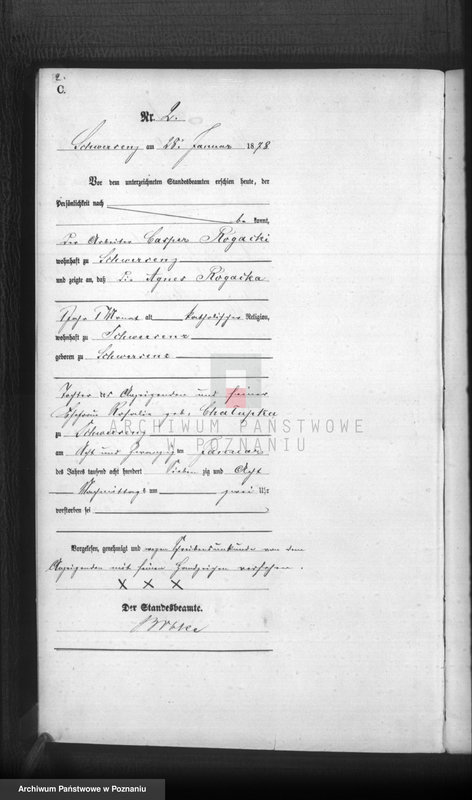 2.
C.
Nr. 2.
Schwersenz am 28. Januar 1878
Vor dem unterzeichneten Standesbeamten erschien heute, der
Persönlichkeit nach
be kannt,
der Arbeiter Casper Rogacki
wohnhaft zu Schwersenz
und zeigte an, daß die Agnes Rogacka
1 Monat alt katholischer Religion,
wohnhaft zu Schwersenz
geboren zu Schwersenz
Tochter des Anzeigenden und seiner
Ehefrau Rosalie geb. Chalupka
zu Schwersenz
am Acht und Zwanzig ten Januar
des Jahres tausend acht hundert Sieben zig und Acht
Nachmittag s um zwei Uhr
verstorben sei
Vorgelesen, genehmigt und wegen Schreibensunkunde von dem
Anzeigenden mit seinen Handzeichen versehen.
X X X
Der Standesbeamte.
ARCHIWUM PAŃSTWOWE
W POZNANIU
Archiwum Państwowe w Poznaniu